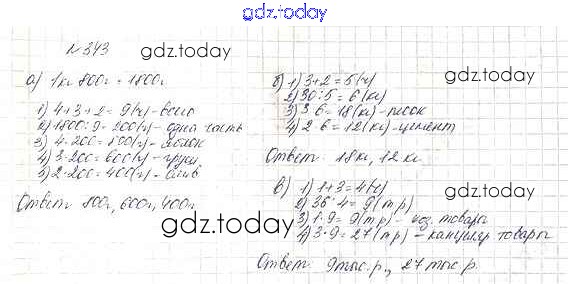 gdz.today
№343
gdz.today
gdz.today
а) 1кг 800г = 1800г
1) 4+3+2=9(ч)-всего
2) 1800:9=200(г)-одна часть
3) 4·200=800(г)-яблок
4) 3·200=600(г)-груш
5) 2·200=400(г)-слив
Ответ: 800г, 600г, 400г
gdz.today
б) 1) 3+2=5(ч)
2) 30:5=6(кг)
3) 3·6=18(кг)-песок
4) 2·6=12(кг)-цемент
Ответ: 18кг, 12кг.
gdz.today
в) 1) 1+3=4(ч)
2) 36:4=9(т.р)
3) 1·9=9(т.р)- товары
4) 3·9=27(т.р)-канцеляр товары
gdz.today
Ответ: 9тыс.р., 27тыс.р.